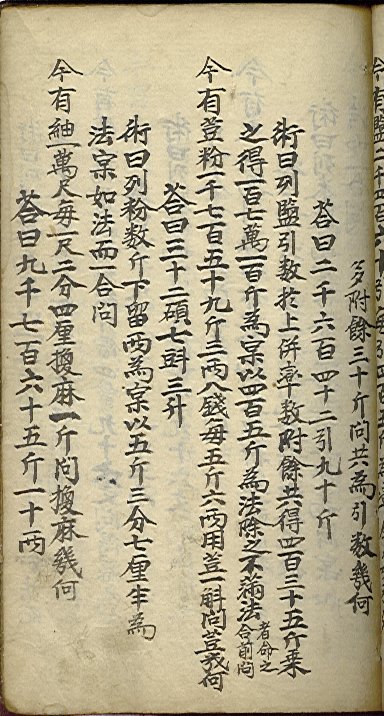 今有鹽二千
多附餘三十斤問共為引數幾何
荅曰二千六百四十二引九十斤
術曰列鹽引數於上併率數附餘共得四百三十五斤乗
之得一百七萬一百斤為宲以四百五斤為法除之不滿法者命之合前問
今有荳粉一千七百五十九斤三兩八錢每五斤六兩用荳一斛問荳幾何
荅曰三十二碩七㪷三升
術曰列粉數斤下留兩為宲以五斤三分七厘半為
法宲如法而一合問
今有紬一萬尺每一尺二分四厘換麻一斤問換麻幾何
荅曰九千七百六十五斤一十兩